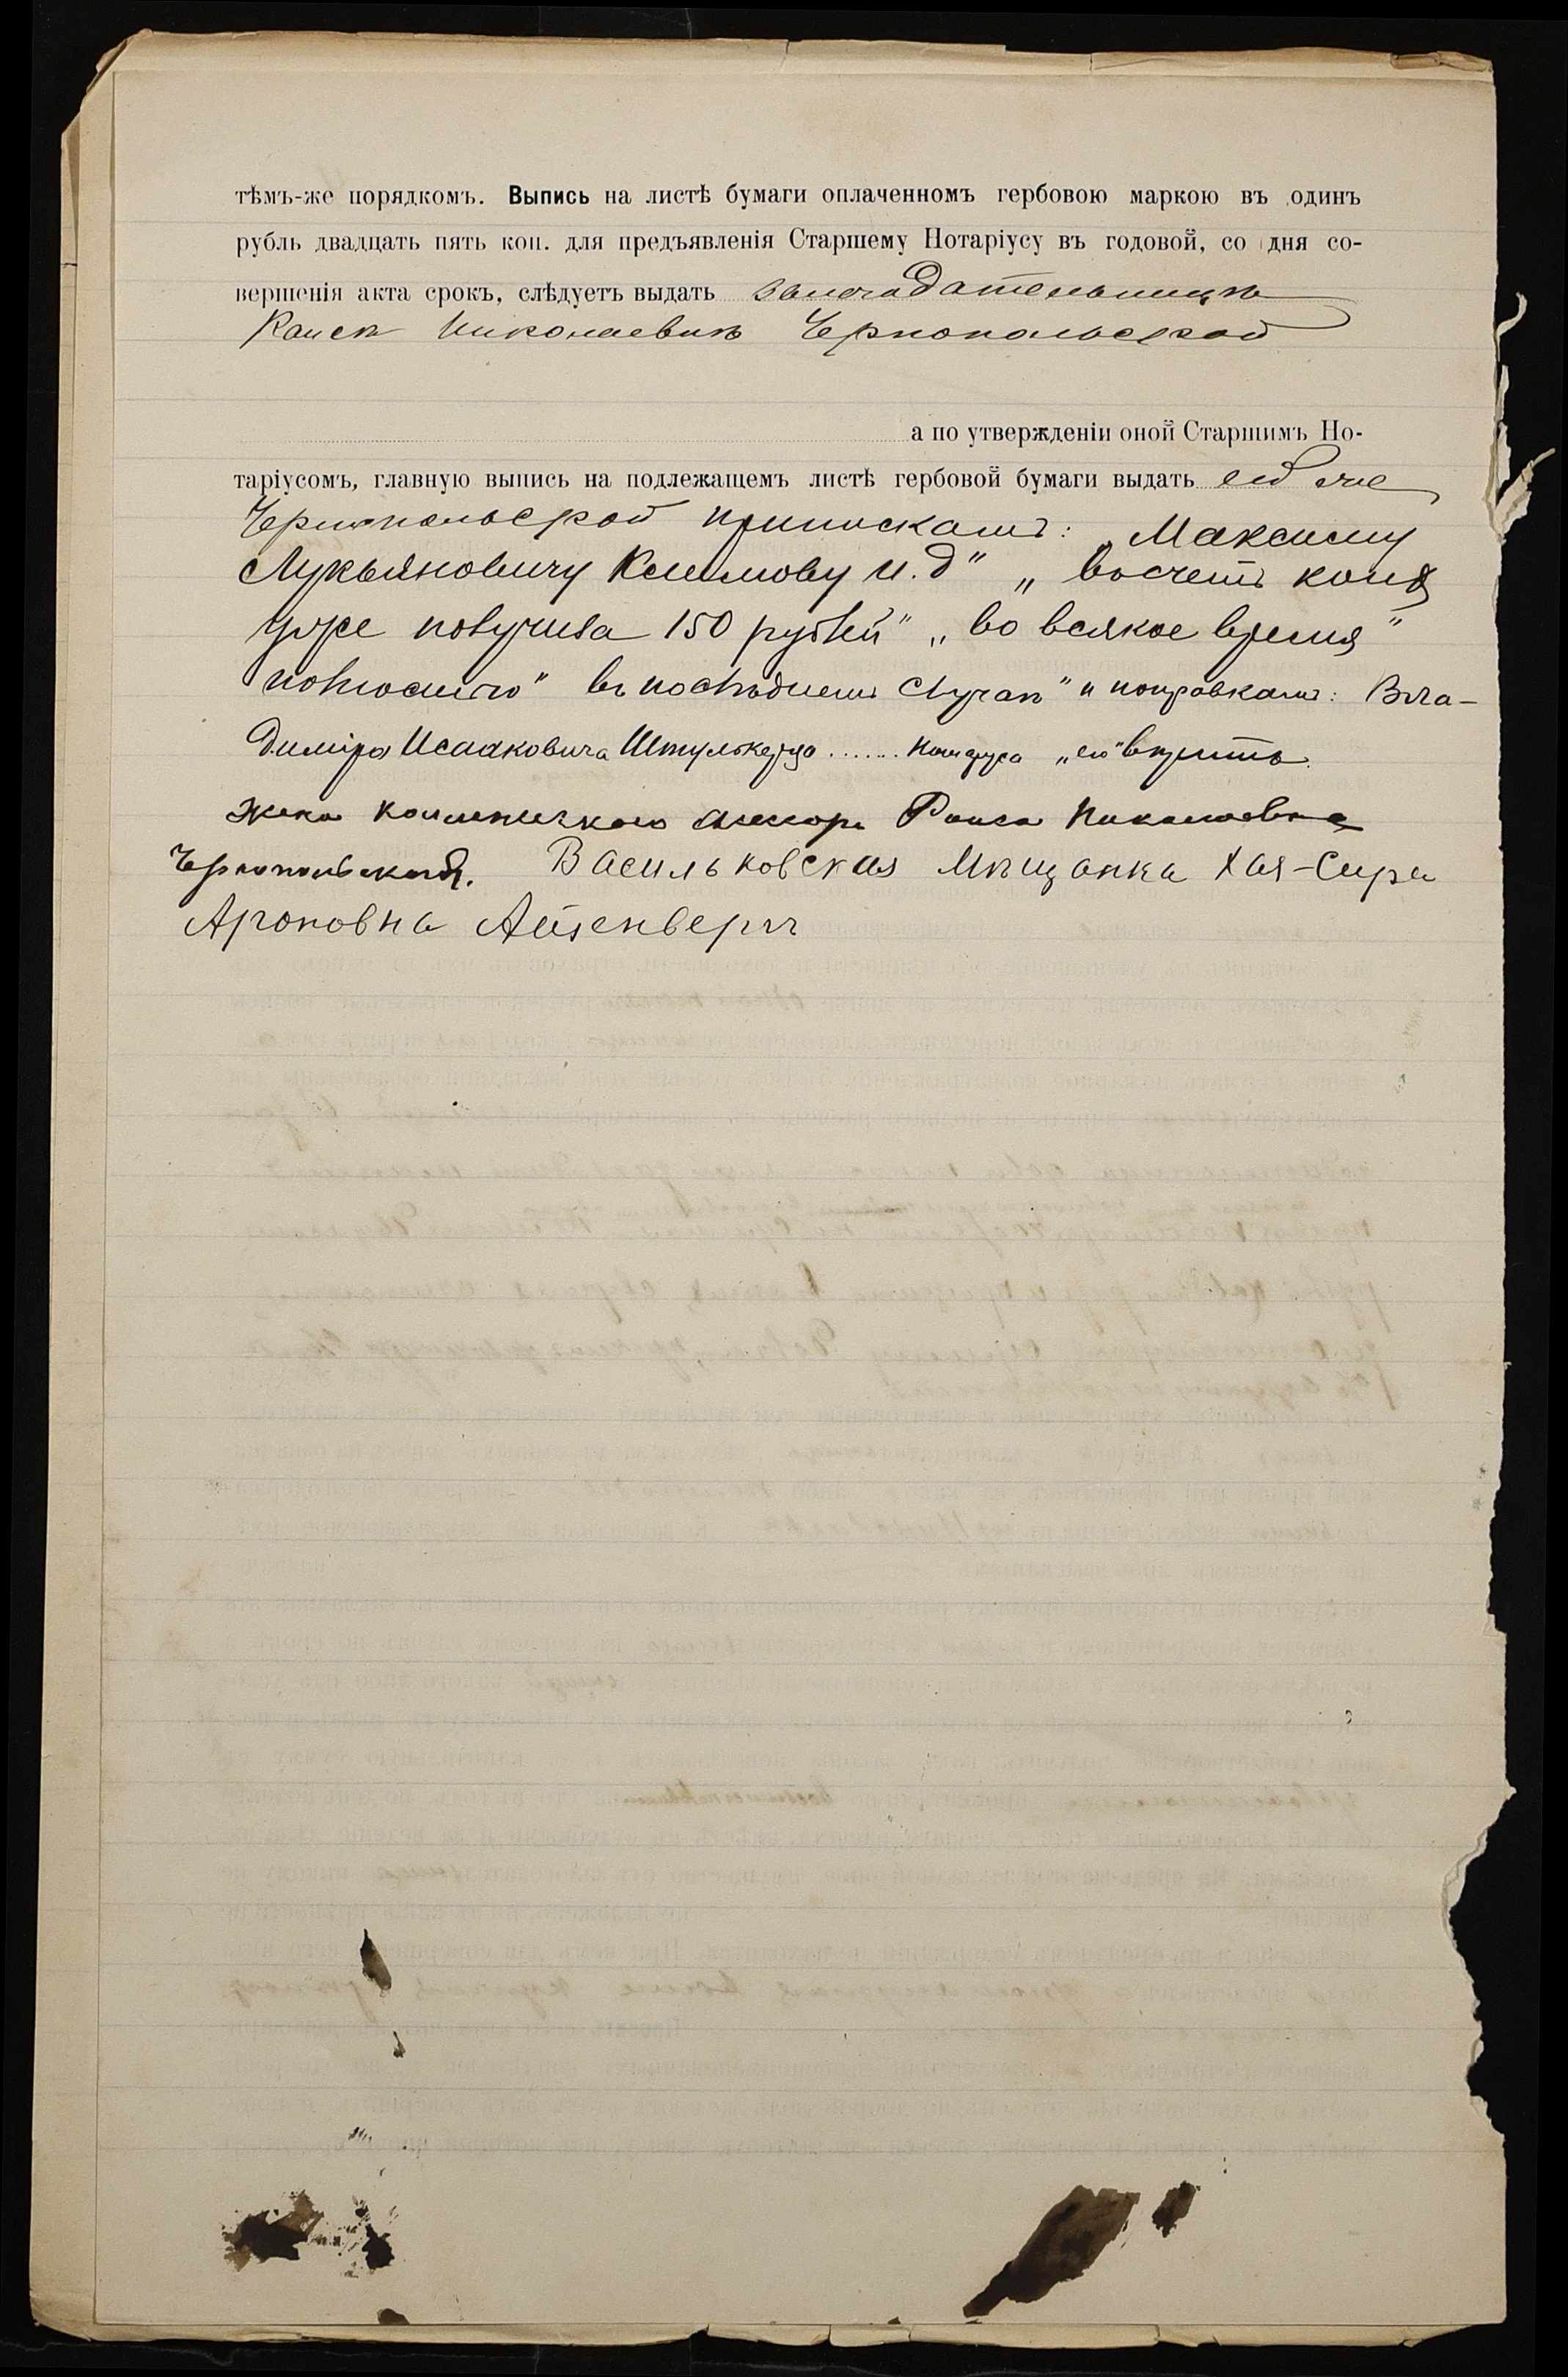 тѣмъ-же порядкомъ. Выпись на листѣ бумаги оплаченномъ гербовою маркою въ одинъ
рубль двадцать пять коп. для предъявленія Старшему Нотаріусу въ годовой, со дня со-
вершенія акта срокъ, слѣдуетъ выдать залогодательницѣ
Раисѣ Николаевнѣ Чернопольской
а по утвержденіи оной Старшимъ Но-
таріусомъ, главную выпись на подлежащемъ листѣ гербовой бумаги выдать ей же
Чернопольской припискамъ: „Максиму
Лукьяновичу Климову и.д“ „
уже получила 150 рублей“ „во всякое время“
полностію“ въ послѣднемъ случаѣ“ и поправкамъ: Вла-
диміра Исааковича Штулькерца ....... Нотаріуса „его“ вѣрить.
Жена Коллежскаго Ассесора Раиса Николаевна
Чернопольская. Васильковская Мѣщанка Хая-Сура
Ароновна Айзенбергъ